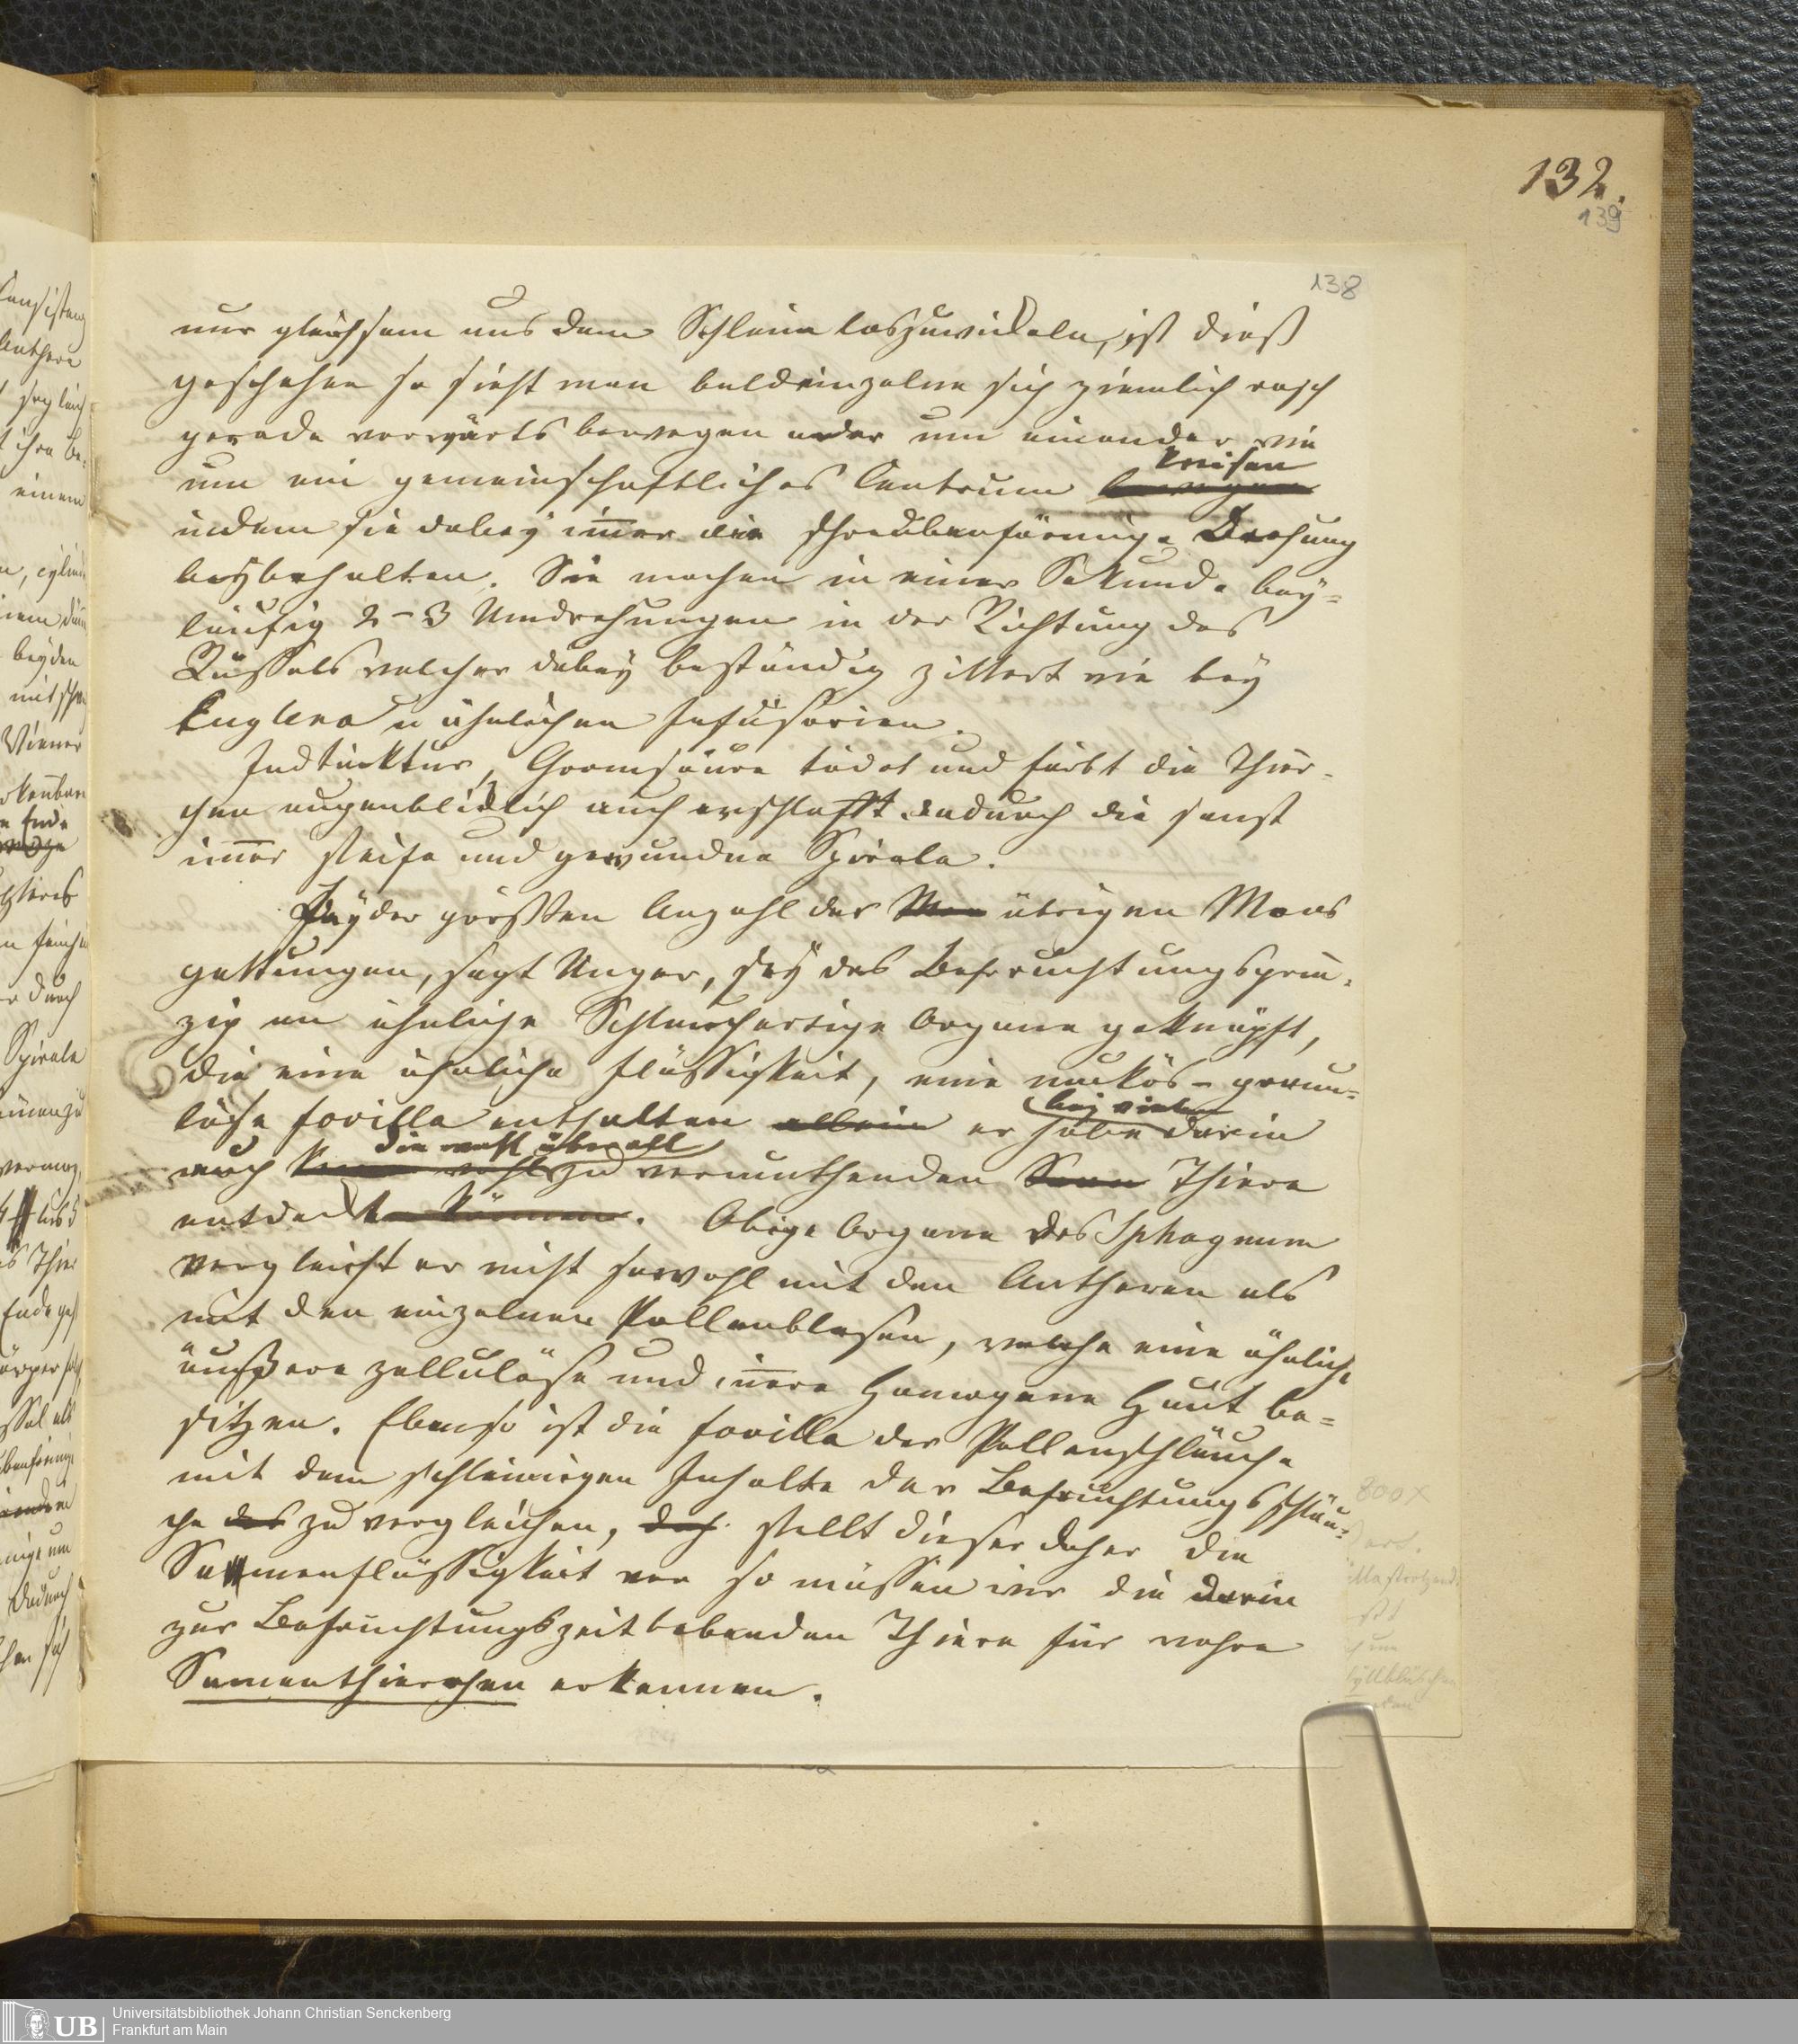 132.
139
138
nur gleichsam aus dem Schleim loszuwickeln, ist dieß
geschehen so sieht man bald einzelne sich ziemlich rasch
gerade vorwärts bewegen oder um einander wie
kreisen
um ein gemeinschaftliches Centrum bewegen
indem sie dabey immer die schraubenförmige Drehung
beybehalten. Sie machen in einer Sekunde bey-
läufig 2-3 Umdrehungen in der Richtung des
Rüssels welcher dabey beständig zittert wie bey
Euglena u ähnlichen Infusorien.
Jodtinktur, Chromsäure tödet und färbt die Thier-
chen augenblicklich auch erschlafft dadurch die sonst
immer steife und gewundne Spirale.
Bey der größten Anzahl der übrigen Moos
gattungen, sagt Unger, sey das Befruchtungsprin-
zip an ähnliche Schlauchartige Organe geknüpft,
die eine ähnliche Flüssigkeit, eine mukös-granu-
bei vielen
löse fovilla enthalten allein er habe darin
die wohl überall
noch wohl zu vermuthenden Thiere
entdeckt können. Obige Organe des Sphagnum
vergleicht er nicht sowohl mit den Antheren als
mit den einzelnen Pollenblasen, welche eine ähnliche
äußere zellulöse und innere homogene Haut be-
sitzen. Ebenso ist die fovilla der Pollenschläuche
mit dem schleimigen Inhalte der Befruchtungsschläu-
che das zu vergleichen, doch stellt dieser daher die
Samenflüssigkeit vor so müssen wir die darin
zur Befruchtungszeit lebenden Thiere für wahre
Samenthierchen erkennen.
800x
UB
Universitätsbibliothek Johann Christian Senckenberg
Frankfurt am Main